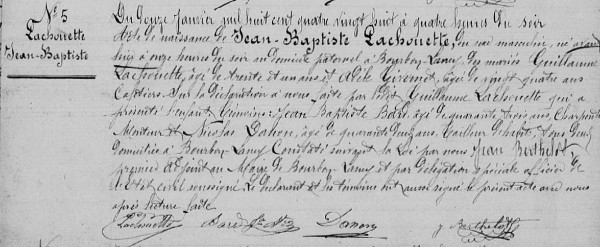 N° 5
Lachouette
Jean-Baptiste
Du douze Janvier mil huit cent quatre vingt huit à quatre heures du soir
Acte de naissance de Jean-Baptiste Lachouette, du sexe masculin, né avant
hier à onze heures du soir au domicile paternel à Bourbon-Lancy, des mariés Guillaume
Lachouette, âgé de trente et un ans et Adèle âgée de vingt quatre ans
Sur la déclaration à nous faite par ledit Guillaume Lachouette qui a
présenté l'enfant. Témoins: Jean Baptiste âgé de quarante trois ans, Charpentier
et Nicolas âgé de quarante ans, Tailleur d'habits, tous deux
domiciliés à Bourbon-Lancy. Constaté suivant la Loi par nous Jean Berthelot
premier adjoint au Maire de Bourbon-Lancy et par délégation spéciale officier de
l'état civil soussigné. Le déclarant et les témoins ont aussi signé le présent acte avec nous
après lecture faite
Lachouette
J Berthelot